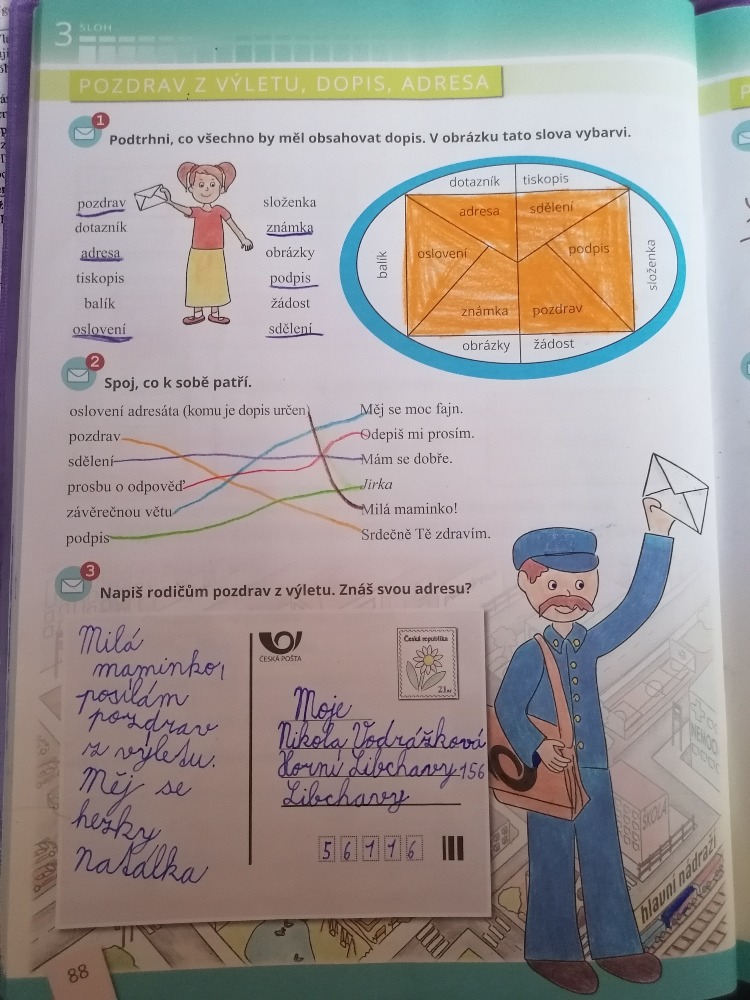 3 SLOH
POZDRAV Z VÝLETU, DOPIS, ADRESA
1
Podtrhni, co všechno by měl obsahovat dopis. V obrázku tato slova vybarvi.
pozdrav
dotazník
adresa
tiskopis
balík
oslovení
složenka
známka
obrázky
podpis
žádost
sdělení
dotazník
tiskopis
adresa
sdělení
balík
oslovení
podpis
složenka
známka
pozdrav
obrázky
žádost
2
Spoj, co k sobě patří.
oslovení adresáta (komu je dopis určen)
pozdrav
sdělení
prosbu o odpověď
závěrečnou větu
podpis
Měj se moc fajn.
Odepiš mi prosím.
Mám se dobře.
Jirka
Milá maminko!
Srdečně Tě zdravím.
3
Napiš rodičům pozdrav z výletu. Znáš svou adresu?
Milá
maminko,
posílám
pozdrav
z výletu.
Měj se
hezky
Natálka
ČESKÁ POŠTA
Česká republika
21
Moje
Nikola Vodrážková
Horní Libchavy 156
Libchavy
56116
ŠKOLA
hlavní nádraží
88